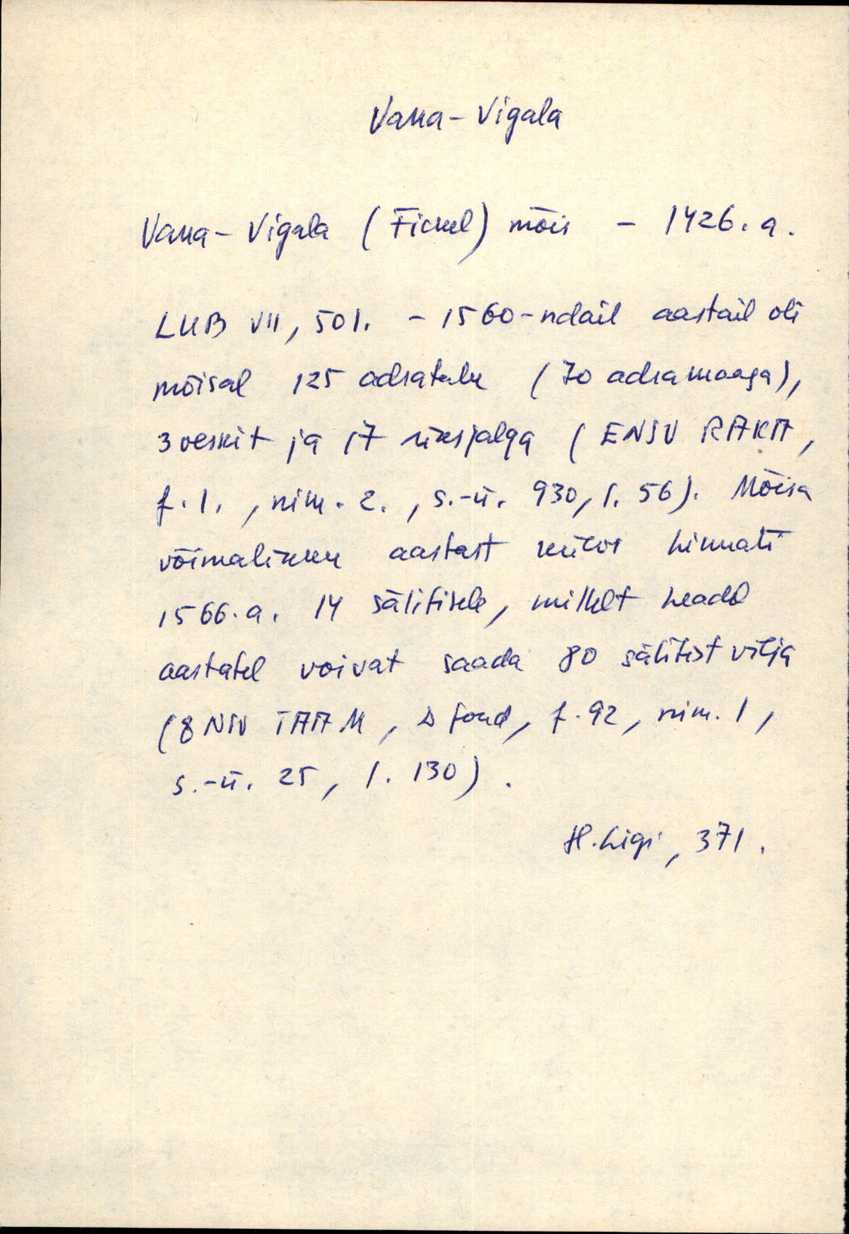 Vana-Vigala
Vana-Vigala (Fickel) mõis - 1426.a.
LUB VII, 501. - 1560-ndail aastail oli
mõisal 125 adratalu (70 adramaaga),
3 veskit ja 17 üksjalga (ENSV RAKA,
f.1., nim. 2., s.-ü. 930, l. 56). Mõisa
võimalikku aastast külvi hinnati
1566.a. 14 sälitisele, millelt headel
aastatel võivat saada 80 sälitist vilja
(ENSV TAAM, D fond, f.92, nim. 1,
s.-ü. 25, l. 130).
H.Ligi, 371.